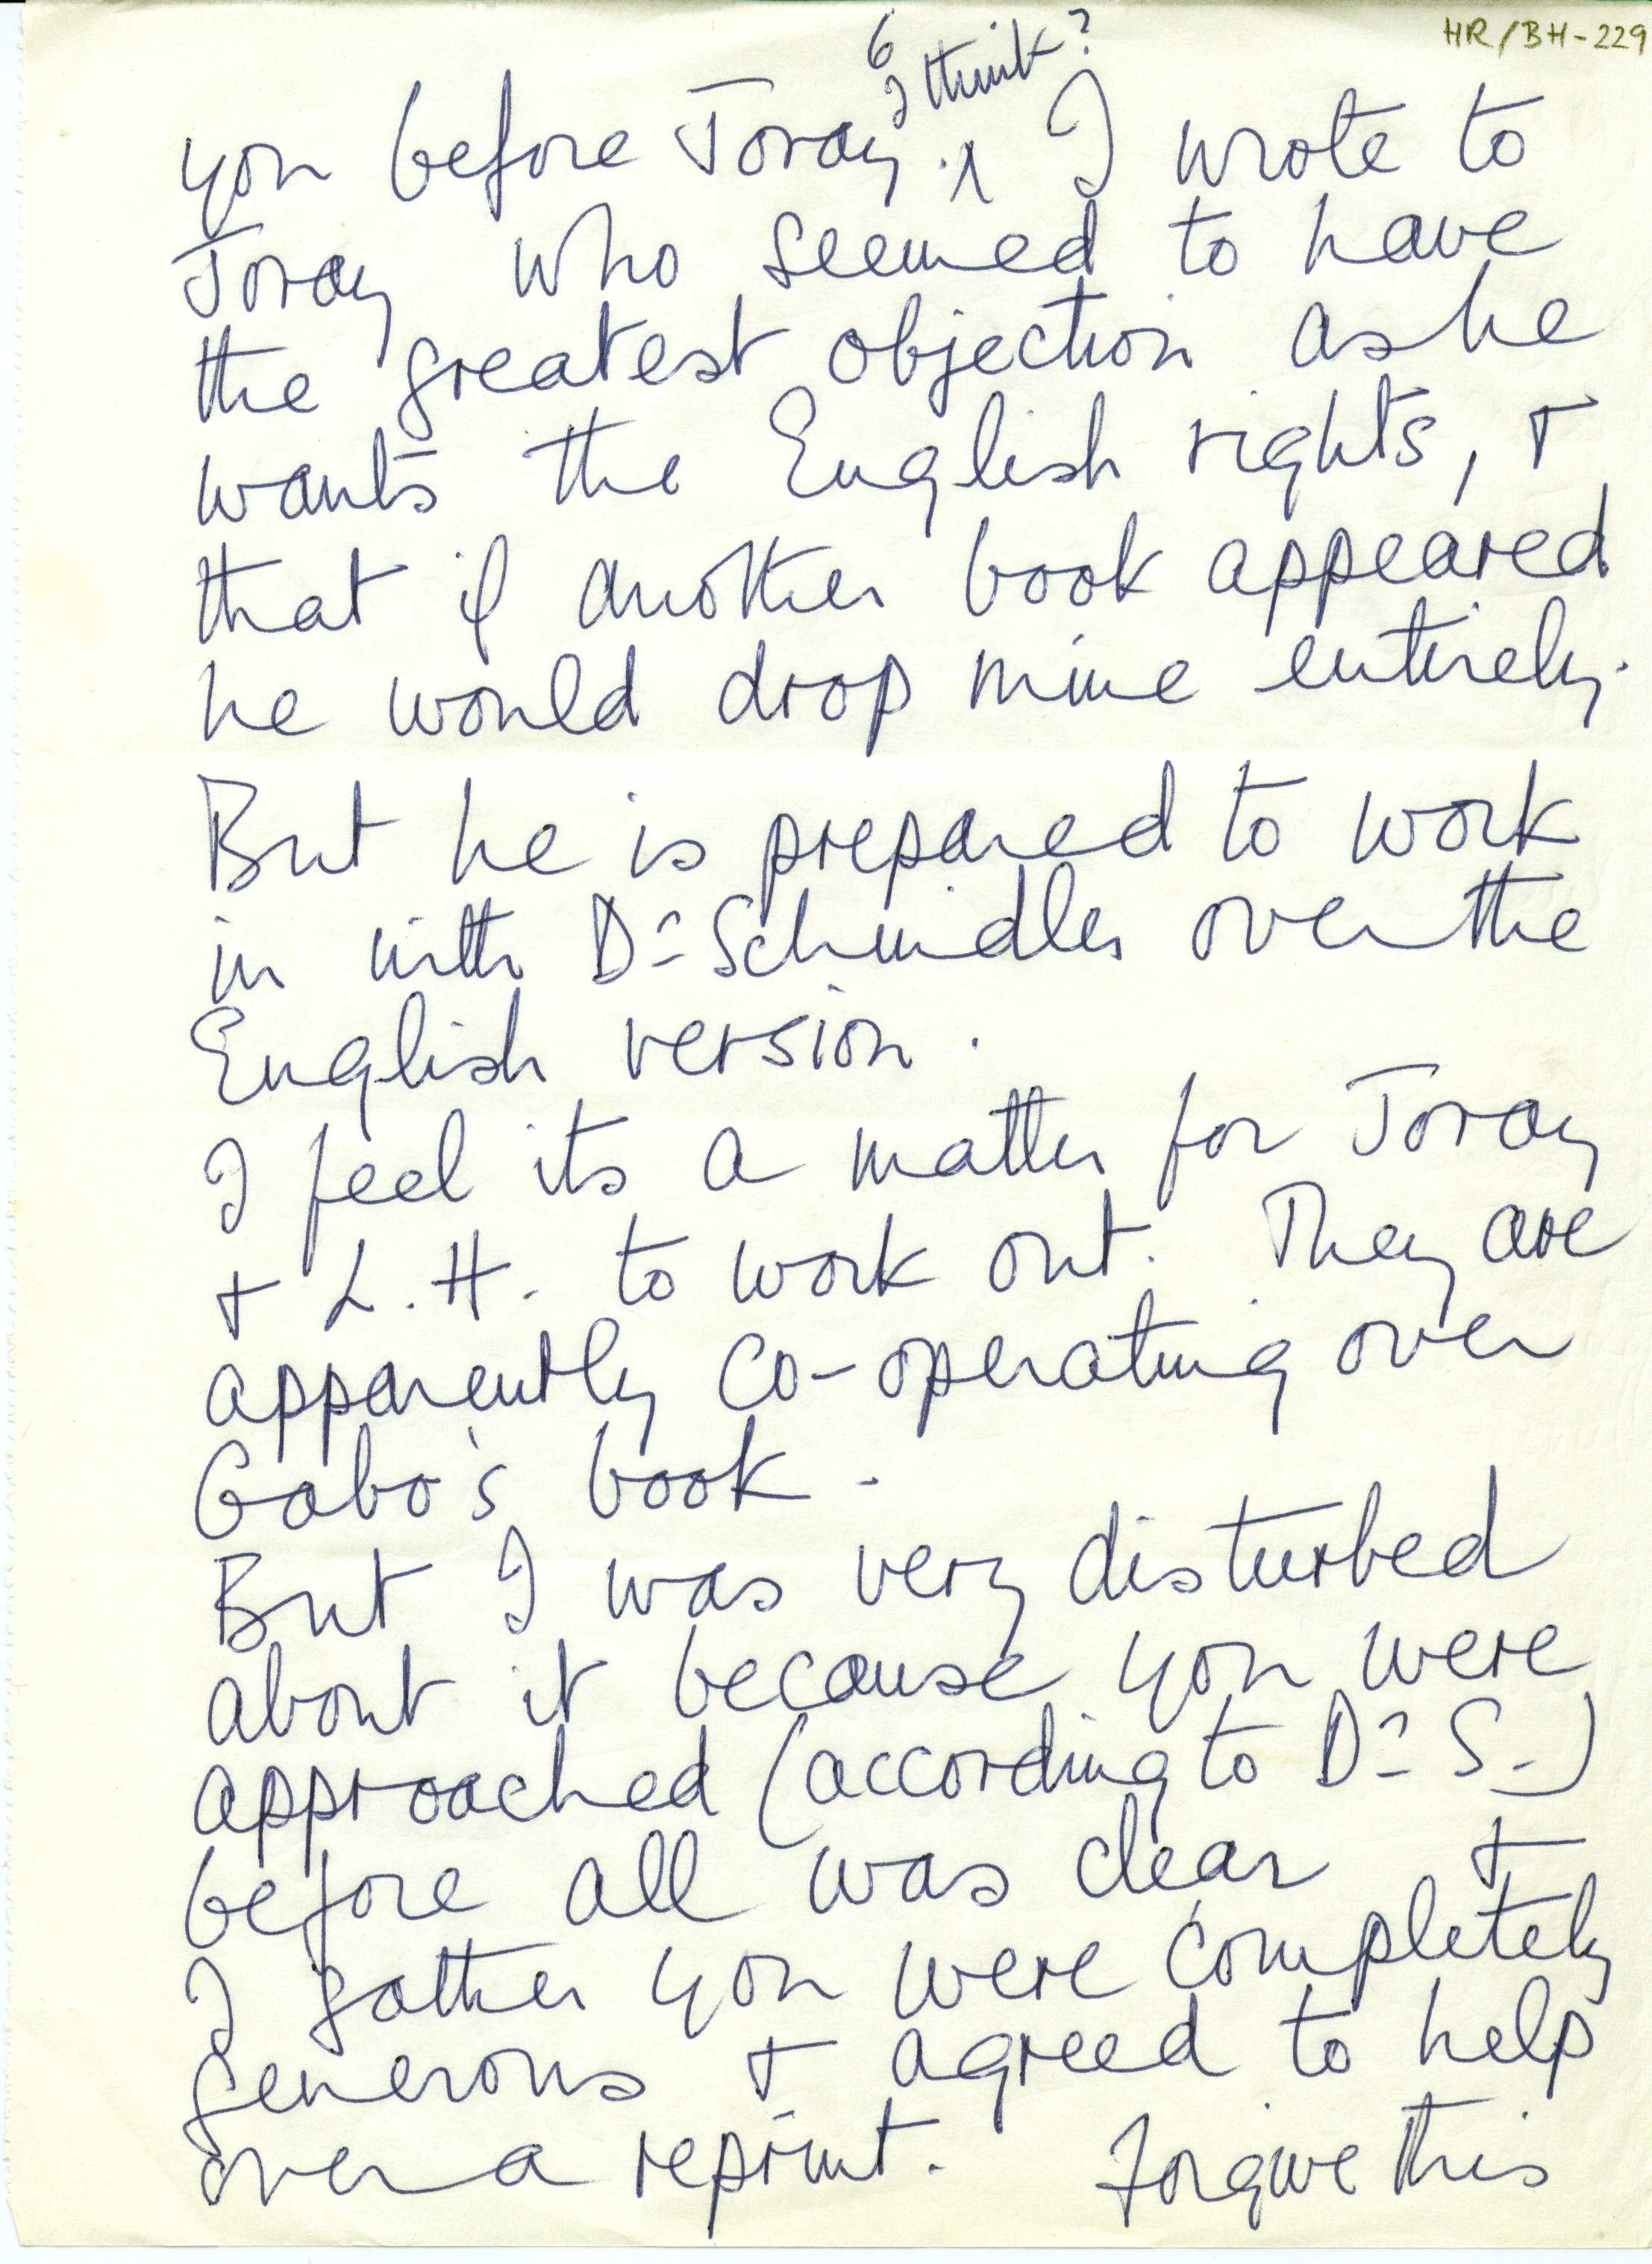 HR/BH-229
6
I think?
you before Joray. ^ I wrote to
Joray who seemed to have
the greatest objection as he
wants the English rights, +
that if another book appeared
he would drop mine entirely.
But he is prepared to work
in with Dr Schindler over the
English version.
I feel its a matter for Joray
+ L. H. to work out. They are
apparently co-operating over
Gabo's book.
But I was very disturbed
about it because you were
approached (according to Dr S.)
before all was clear +
I gather you were completely
generous + agreed to help
over a reprint. Forgive this